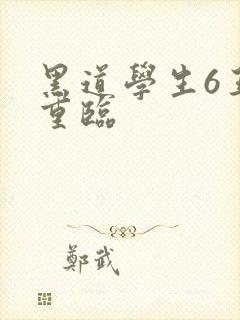 黑道學生6王
重臨
鄭武